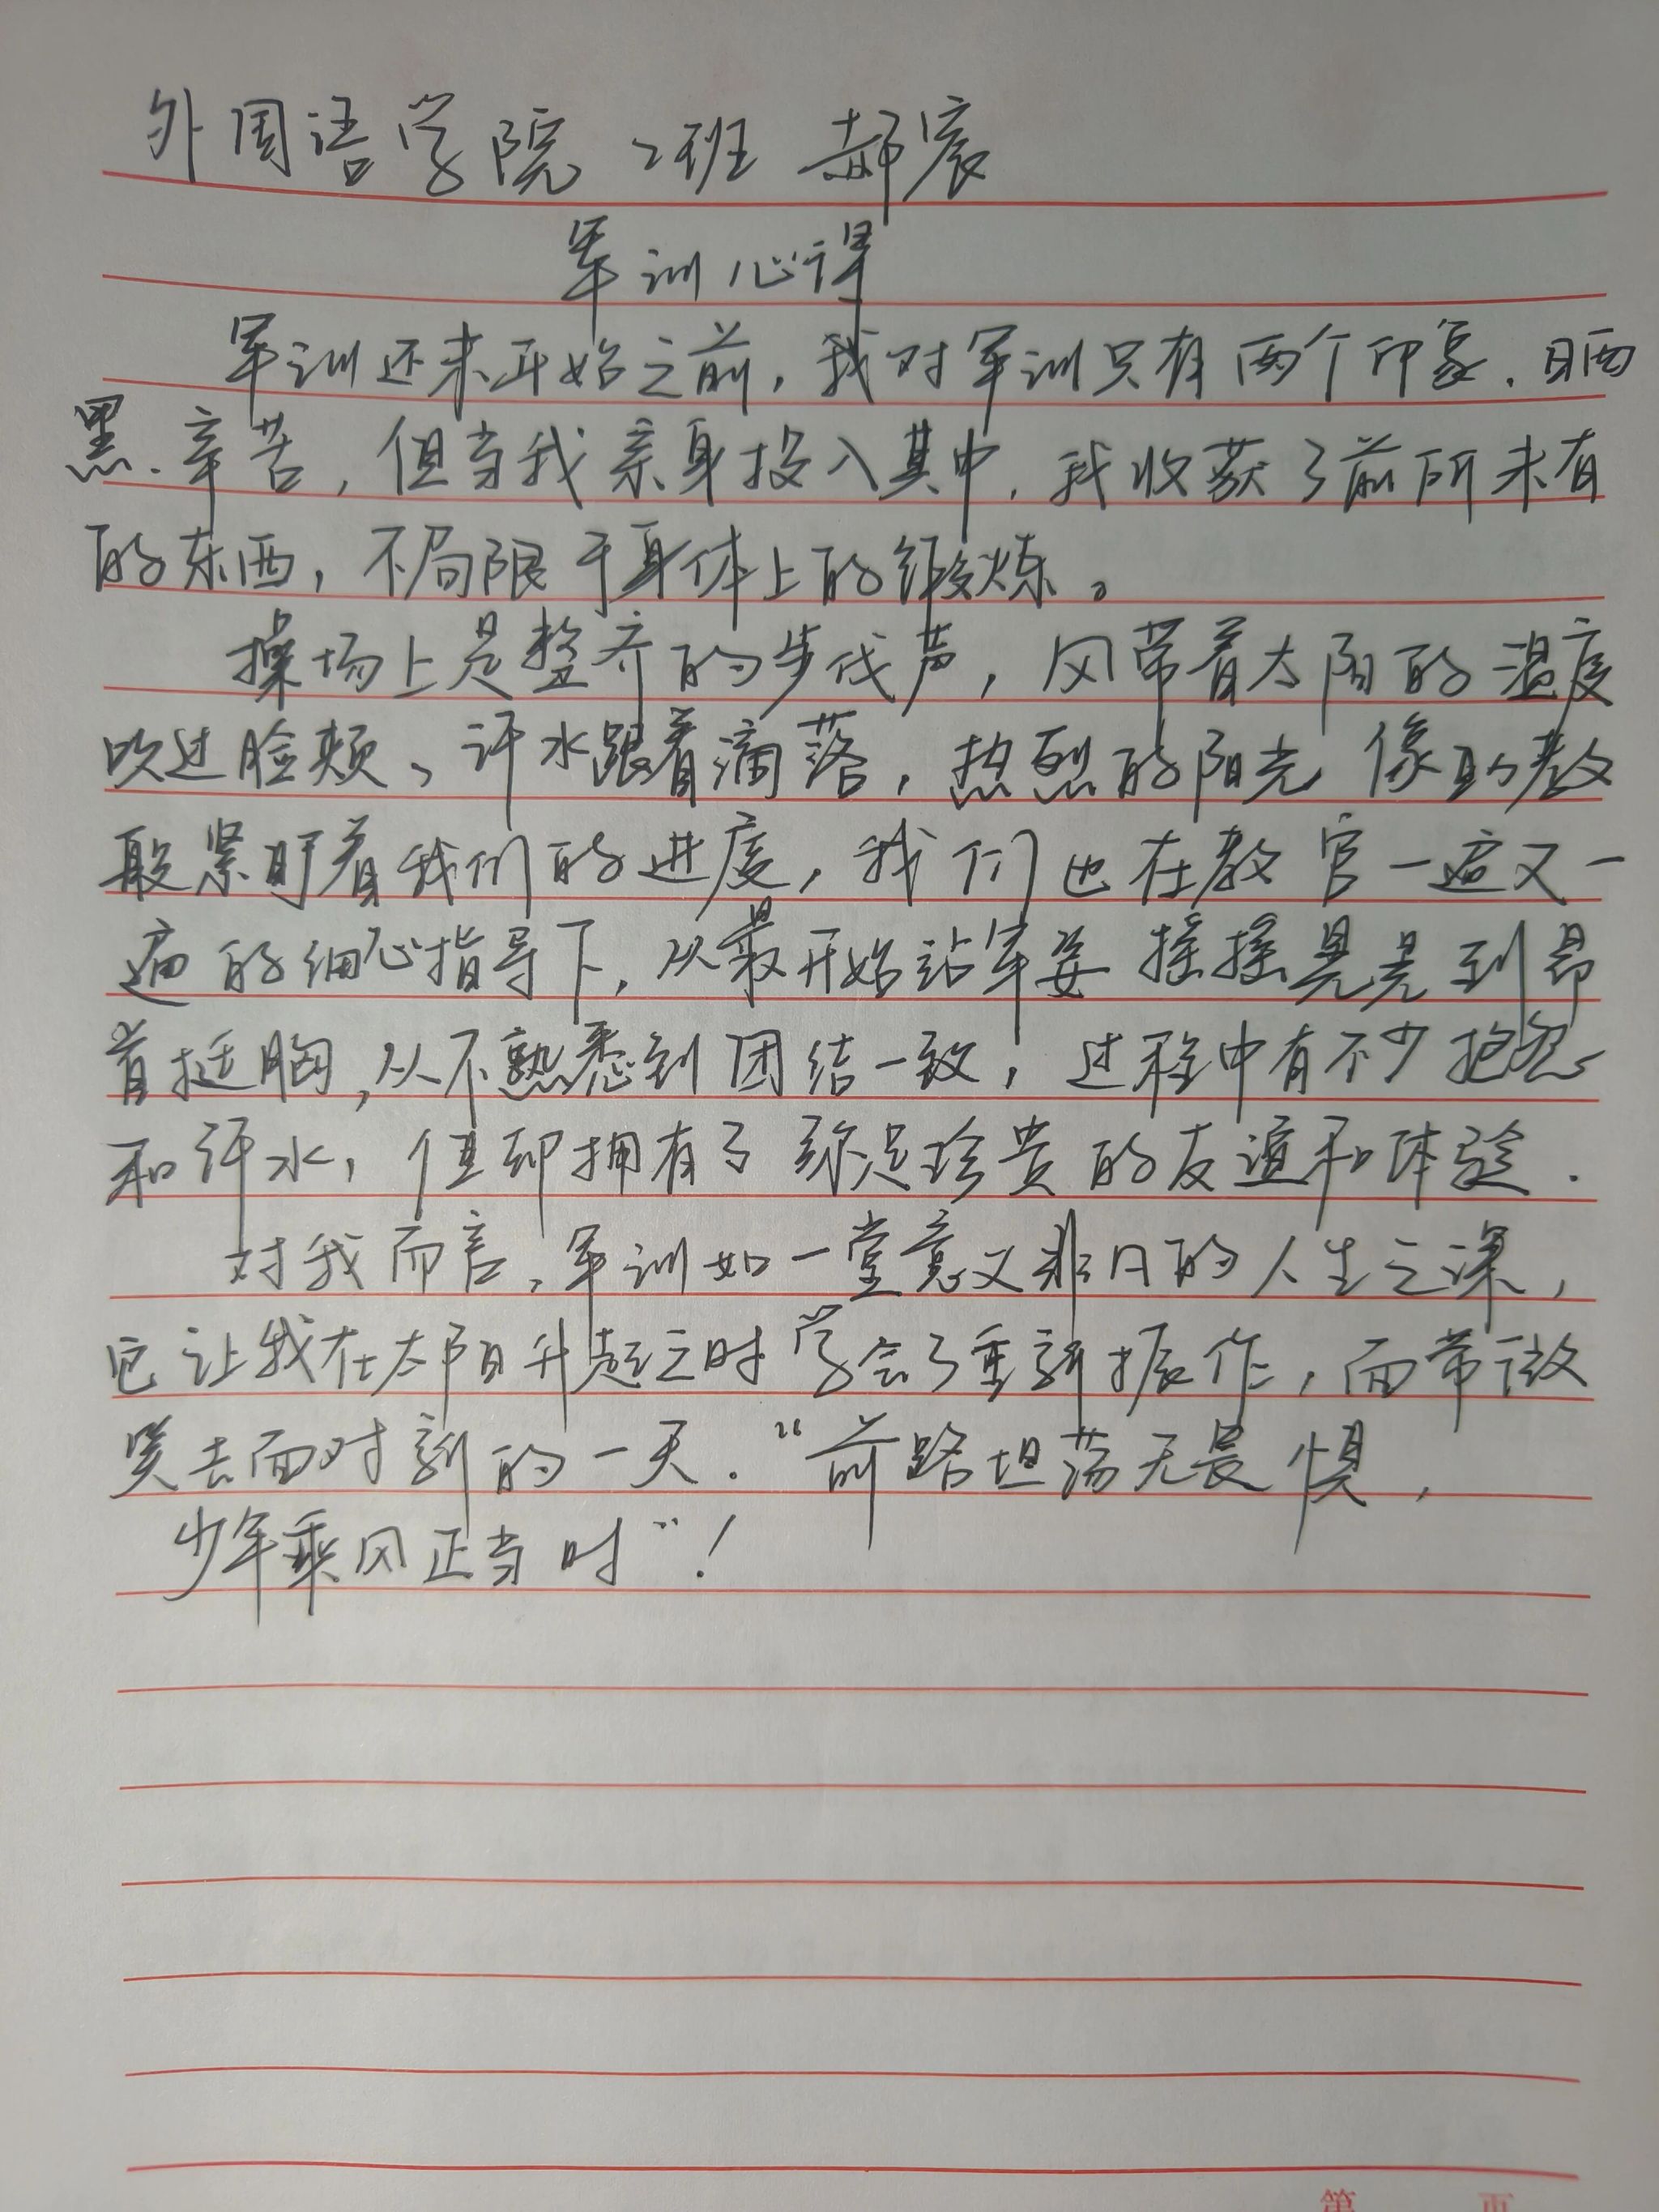 外国语学院 2班 郝宸
军训心得
军训还未开始之前，我对军训只有两个印象、晒
黑、辛苦，但当我亲身投入其中，我收获了前所未有
的东西，不局限于身体上的锻炼。
操场上是整齐的步伐声，风带着太阳的温度
吹过脸颊、汗水跟着滴落，热烈的阳光像助教
般紧盯着我们的进度，我们也在教官一遍又一
遍的细心指导下，从最开始站军姿摇摇晃晃到昂
首挺胸，从不熟悉到团结一致，过程中有不少抱怨
和汗水，但却拥有了弥足珍贵的友谊和体验．
对我而言，军训如一堂意义非凡的人生之课，
它让我在太阳升起之时学会了重新振作，面带微
笑去面对新的一天．“前路坦荡无畏惧，
少年乘风正当时”！
第 页